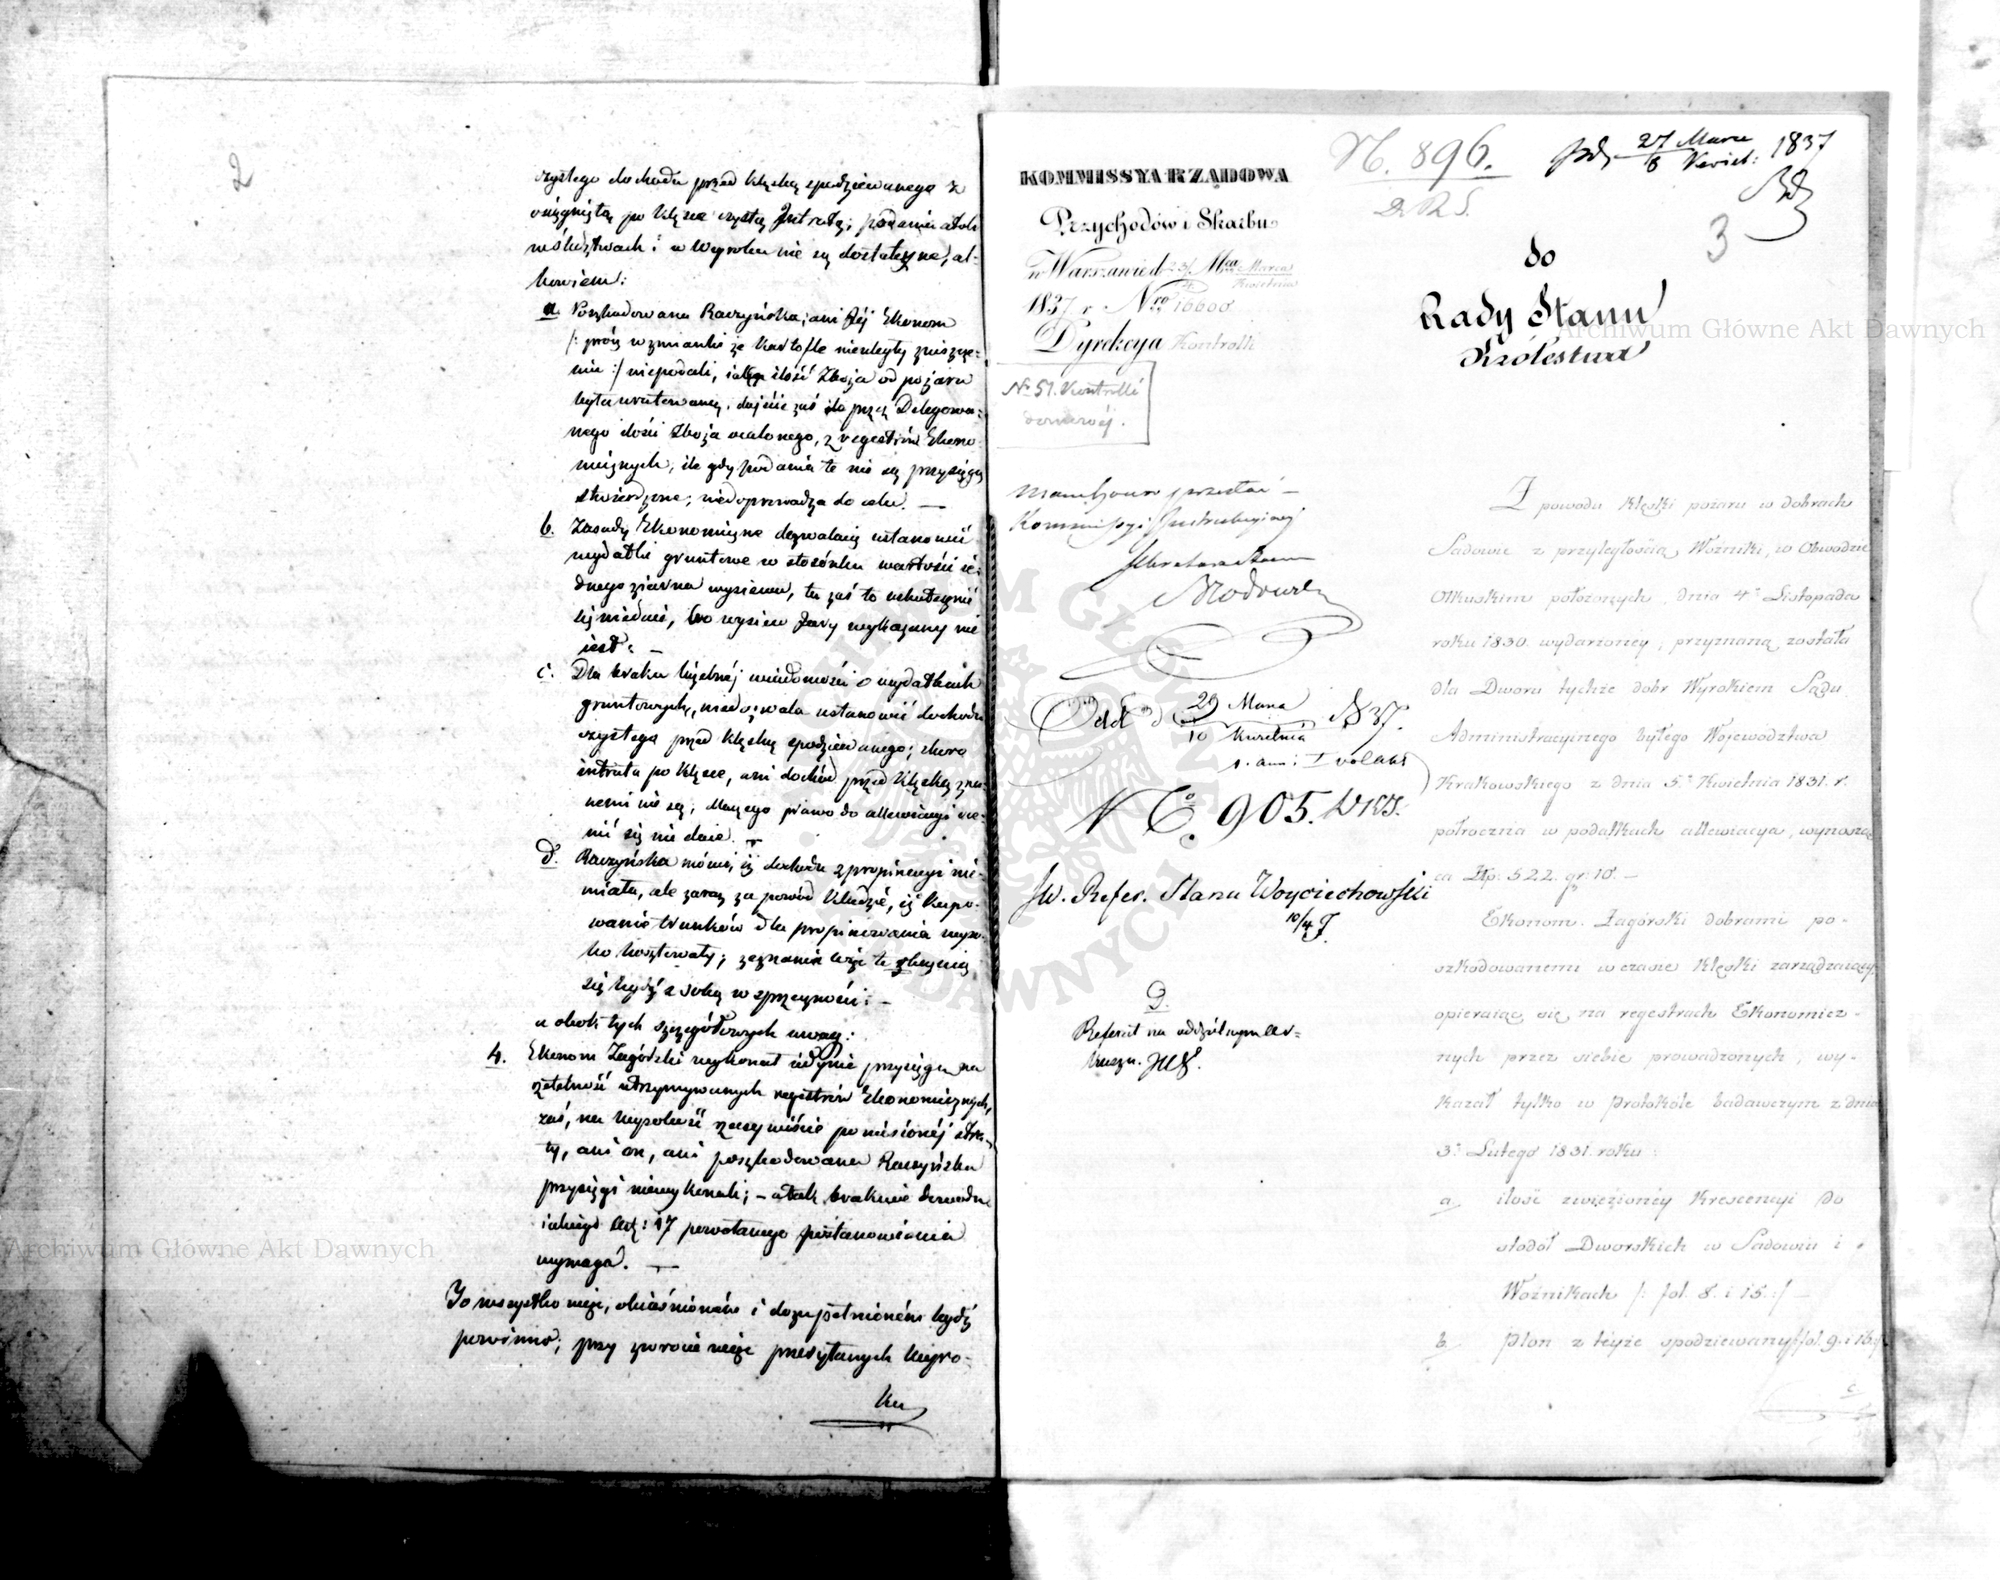 2
czystego dochodu przed klęską spodziewanego z
osiągniętą po klęsce czystą Intratą; podania atoli
w śledztwach i w Wyroku nie są dostateczne, al-
bowiem:
a. Poszkodowana Raczyńska, ani Jéj Ekonom
/: prócz wzmianki że kartofle nieuległy zniszcze-
niu :/ niepodali, iaka ilość zboża od pożaru
była uratowaną, dojście zaś do przez Delegowa-
nego ilości zboża ocalonego, z regestrów Ekono-
micznych, ile gdy podania te nie są przysięgą
stwierdzone, niedoprowadza do celu. —
b. Zasady Ekonomiczne dozwalaią ustanowić
wydatki gruntowe w stosunku wartości ie-
dnego ziarna wysiewu, tu zaś to uskutecznić
się nieda, bo wysiew Jary wykazany nie
iest. —
c. Dla braku liczebnéj wiadomości o wydatkach
gruntowych, niedozwala ustanowić dochodu
czystego przed klęską spodziewanego; skoro
intrata po klęsce, ani dochód przed klęską zna-
nemi nie są, Maiącego prawo do allewiacyi oce-
nić się nie daie. —
d. Raczyńska mówi, iż dochodu z propinacyi nie-
miała, ale zaraz za powód kładzie, iż kupo-
wanie trunków dla propinowania wyso-
ko kosztowały; zeznania więc te zbijaią
się bydź z sobą w sprzeczności; —
a obok tych szczegółowych uwag:
4. Ekonom Zagórski wykonał iedynie przysięgę na
rzetelność utrzymywanych regestrów Ekonomicznych,
zaś, na wypadek rzeczywiście poniesionéj stra-
ty, ani on, ani poszkodowana Raczyńska
przysięgi niewykonali; — a tak braknie dowodu
iakiego art: 17 powołanego postanowienia
wymaga. —
To wszystko więc, obiaśnioném i dozupełnioném bydź
powinno; przy zwrocie więc przesyłanych Wyro-
ku
KOMMISSYA RZĄDOWA
Przychodów i Skarbu
w Warszawie d. Mca Marca
Kwietnia
1837 r. Nro 16600
Dyrekcya Kontrolli
No 51. Kontrolli
N. 896.
D R S.
27 Marca 1837
8 Kwiet:
3
do
Rady Stanu
Królestwa
przesłać —
Kommissyi Instrukcyjnej
Odd d 29 Marca 1837.
10 Kwietnia
No. 905.
JW. Refer. Stanu Woyciechowski
10/4
D.
Referat na oddzielnym ar-
kuszu.
Z powodu klęski pożaru w dobrach
Sadowie z przyległością Woźniki, w Obwodzie
Olkuskim położonych, dnia 4o Listopada
roku 1830. wydarzoney, przyznaną została
dla Dworu tychże dobr Wyrokiem Sądu
Administracyinego byłego Wojewodztwa
Krakowskiego z dnia 5o Kwietnia 1831. r.
półroczna w podatkach allewiacya, wynosząca
Złp: 522. gr: 10. —
Ekonom Zagórski dobrami po-
szkodowanemi w czasie klęski zarządzaiący,
opieraiąc się na regestrach Ekonomicz-
nych przez siebie prowadzonych, wy-
kazał tylko w protokóle badawczym z dnia
3o Lutego 1831. roku:
a. ilość zwiezioney Krescencyi do
stodół Dworskich w Sadowiu i
Woźnikach /: fol. 8. i 15. :/ —
b. Plon z teyże spodziewany /: fol. 9. i 16. :/
c.
Archiwum Główne Akt Dawnych
Archiwum Główne Akt Dawnych
ARCHIWUM GŁÓWNE AKT DAWNYCH